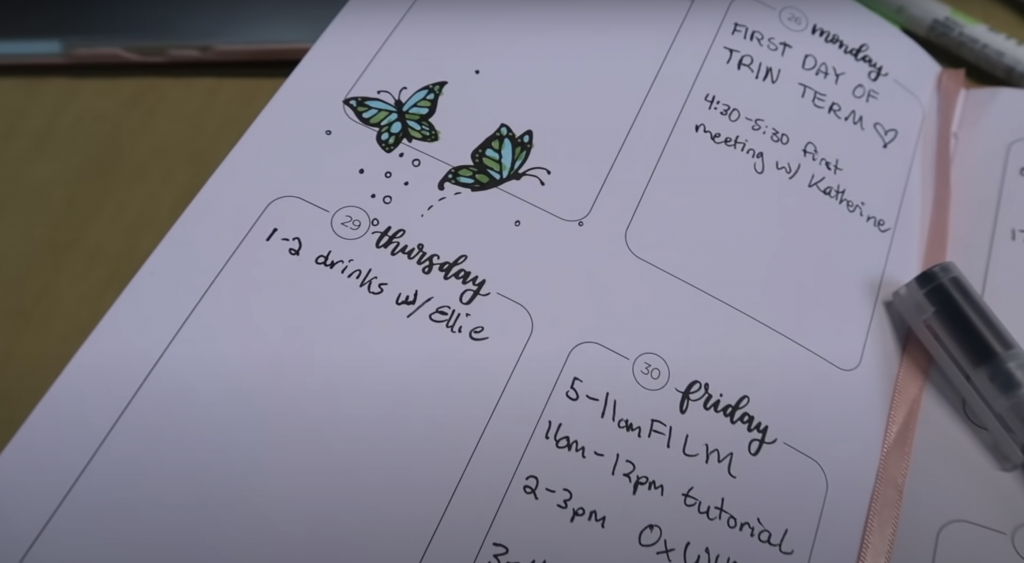 26 monday
FIRST DAY OF
TRIN TERM♡
4:30-5:30 first
meeting w/ Katherine
29 thursday
1-2 drinks w/ Ellie
30 friday
5-11am FILM
11am-12pm tutorial
2-3pm